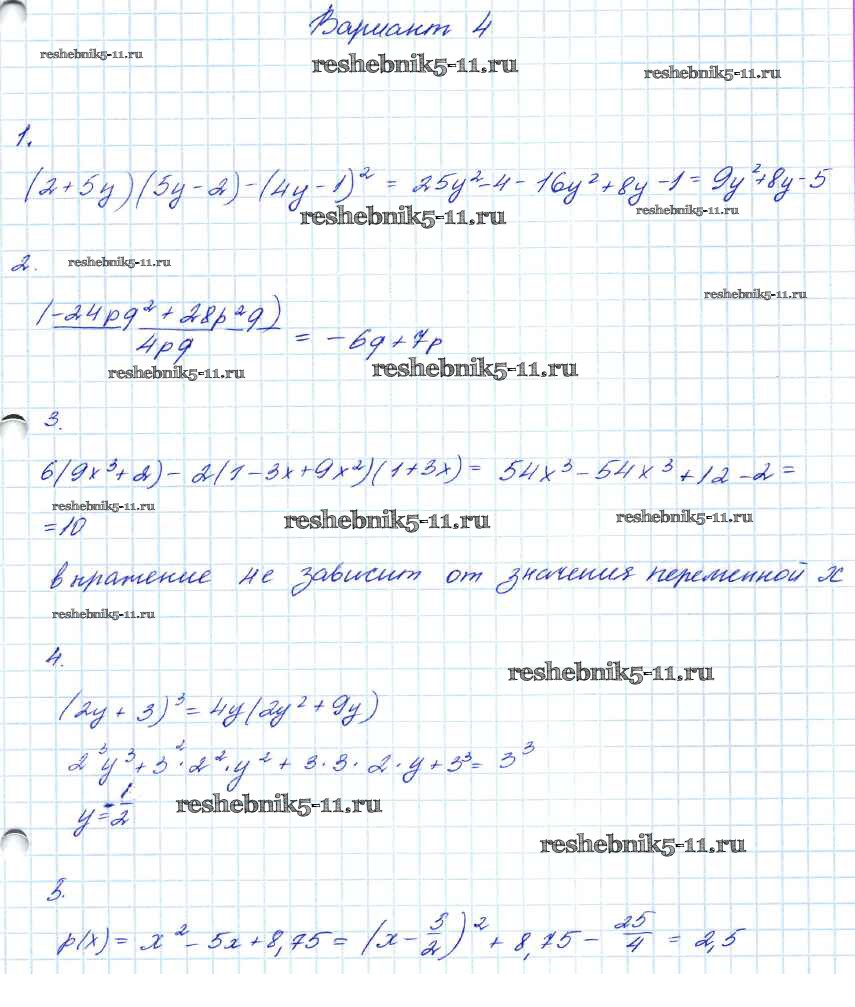 Вариант 4
reshebnik5-11.ru
reshebnik5-11.ru
reshebnik5-11.ru
1.
(2+5y)(5y-2)-(4y-1)² = 25y²-4-16y²+8y-1=9y²+8y-5
reshebnik5-11.ru
reshebnik5-11.ru
2.
reshebnik5-11.ru
reshebnik5-11.ru
(-24pq²+28p²q)
4pq
= -6q+7p
reshebnik5-11.ru
reshebnik5-11.ru
3.
6(9x³+2)-2(1-3x+9x²)(1+3x)= 54x³-54x³+12-2=
reshebnik5-11.ru
reshebnik5-11.ru
reshebnik5-11.ru
=10
выражение не зависит от значения переменной x
reshebnik5-11.ru
4.
reshebnik5-11.ru
(2y+3)³=4y(2y²+9y)
2³y³+3²·2²·y²+3·3·2·y+3³= 3³
y=-1/2
reshebnik5-11.ru
reshebnik5-11.ru
5.
p(x)= x²-5x+8,75=(x-5/2)²+8,75-25/4=2,5